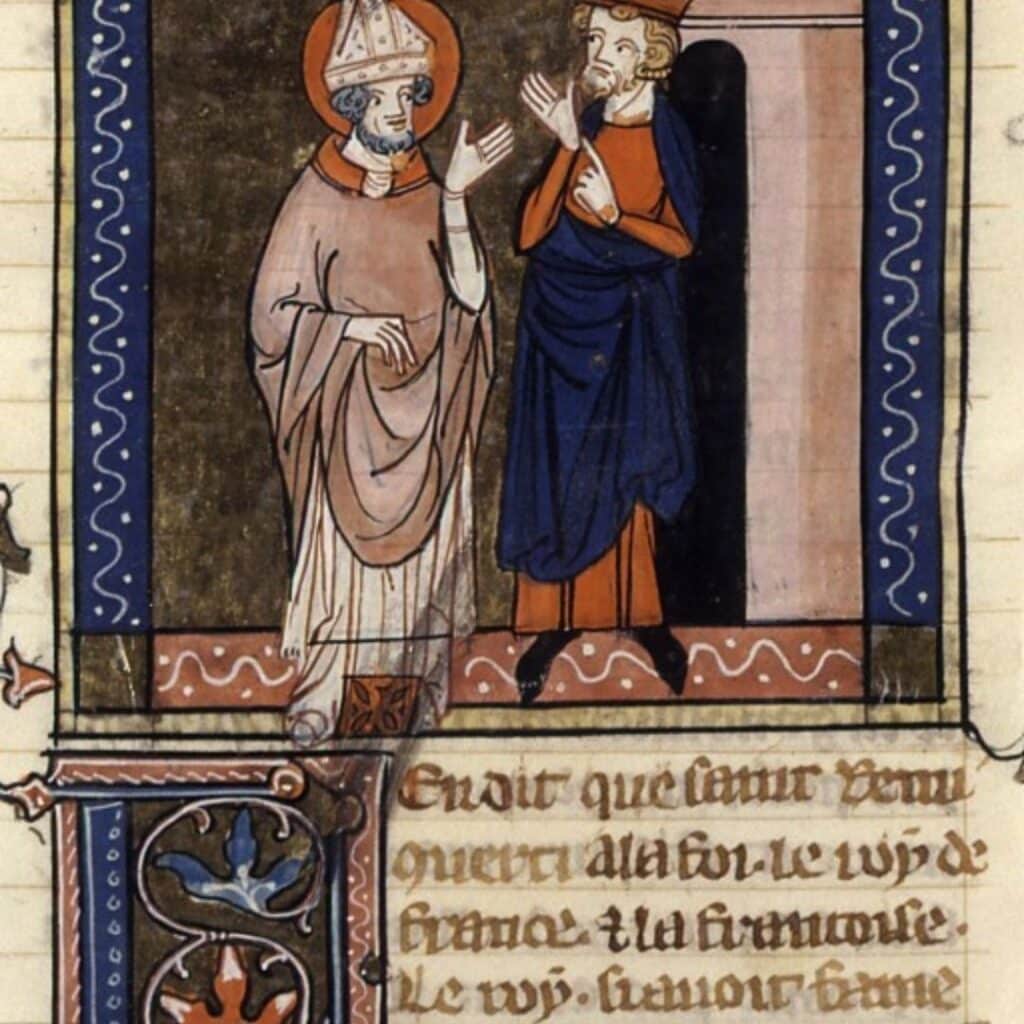 En dit que saint Remi
querti a la foi. le roy de
france. & la francoise.
Le roy. si auoit fame